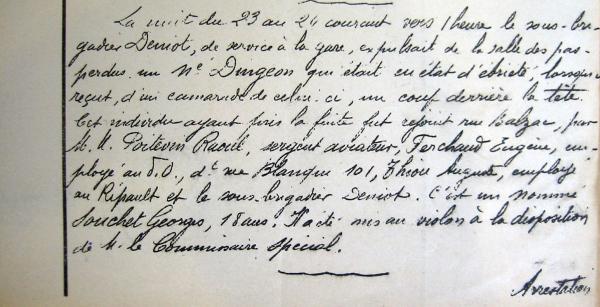 La nuit du 23 au 24 courant vers 1 heure le sous-bri-
gadier Deniot, de service à la gare, expulsait de la salle des pas-
perdus un Né Dingeon qui était en état d'ébriété, lorsqu'il
reçut, d'un camarade de celui-ci, un coup derrière la tête.
Cet individu ayant pris la fuite fut rejoint rue Balzac, par
M.M. Poitevin Raoul, sergent aviateur, Ferchaud Eugène, em-
ployé au P.O., dt rue Blanqui 101, Thiou Auguste, employé
au Ripault et le sous-brigadier Deniot. C'est un nommé
Souchet Georges, 18 ans. Il a été mis au violon à la disposition
de M. le Commissaire Spécial.
Arrestation